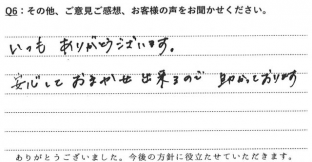 Q6：その他、ご意見ご感想、お客様の声をお聞かせください。
いつも ありがとうございます。
安心して おまかせ 出来るので 助かっております
ありがとうございました。今後の方針に役立たせていただきます。